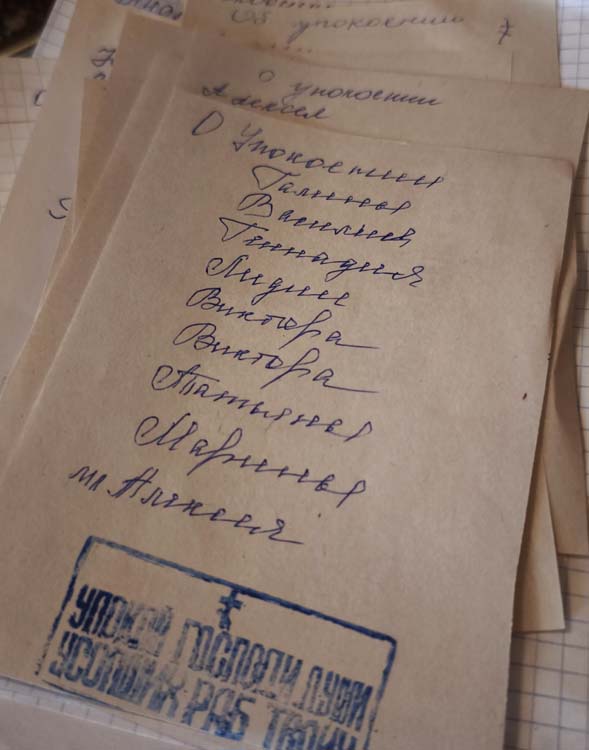 Об упокоении
о упокоении
Алексея
О Упокоении
Галины
Василия
Геннадия
Лидии
Виктора
Виктора
Татьяны
Марины
мл. Алексея
УПОКОЙ ГОСПОДИ ДУШИ
УСОПШИХ РАБ ТВОИХ